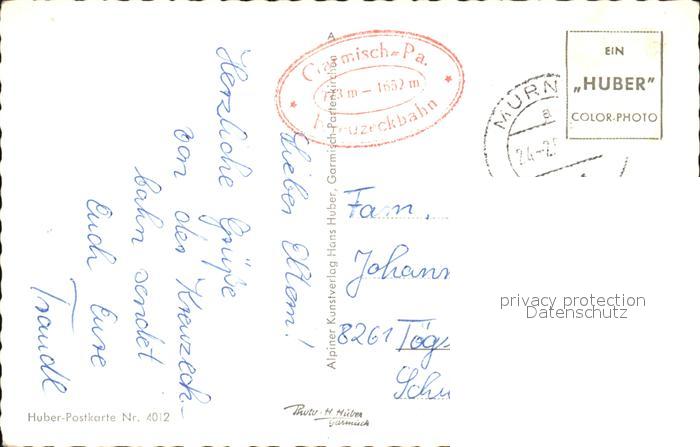 Lieben Eltern!
Herzliche Grüße
von der Kreuzeck-
bahn sendet
Euch Eure
Traudl
Huber-Postkarte Nr. 4012
A
Alpiner Kunstverlag Hans Huber, Garmisch-Partenkirchen
Garmisch-Pa.
m – 1652 m
Kreuzeckbahn
Photo H. Huber
Garmisch
EIN
„HUBER"
COLOR-PHOTO
MURN
a
24-2
Fam.
Johann
8261 Tög
Schu
privacy protection
Datenschutz